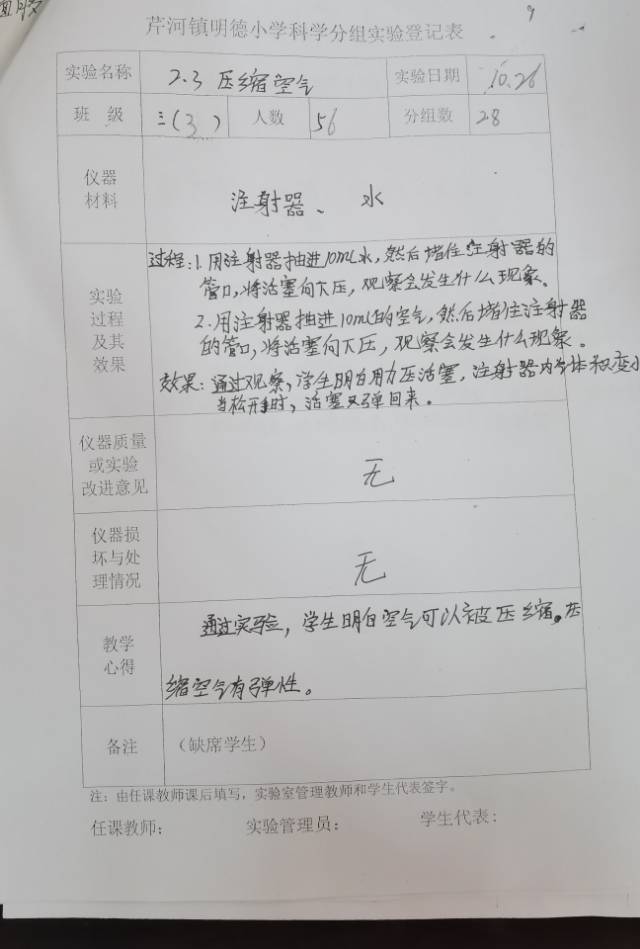 芹河镇明德小学科学分组实验登记表
实验名称 2.3 压缩空气 实验日期 10.26
班 级 三(3) 人数 56 分组数 28
仪器
材料
注射器、 水
实验
过程
及其
效果
过程:1.用注射器抽进10mL水,然后堵住注射器的
管口,将活塞向下压,观察会发生什么现象。
2.用注射器抽进10mL的空气,然后堵住注射器
的管口,将活塞向下压,观察会发生什么现象。
效果:通过观察,学生明白用力压活塞,注射器内气体积变小
当松开手时,活塞又弹回来。
仪器质量
或实验
改进意见
无
仪器损
坏与处
理情况
无
教学
心得
通过实验,学生明白空气可以被压缩。压
缩空气有弹性。
备注 (缺席学生)
注:由任课教师课后填写,实验室管理教师和学生代表签字。
任课教师: 实验管理员: 学生代表: